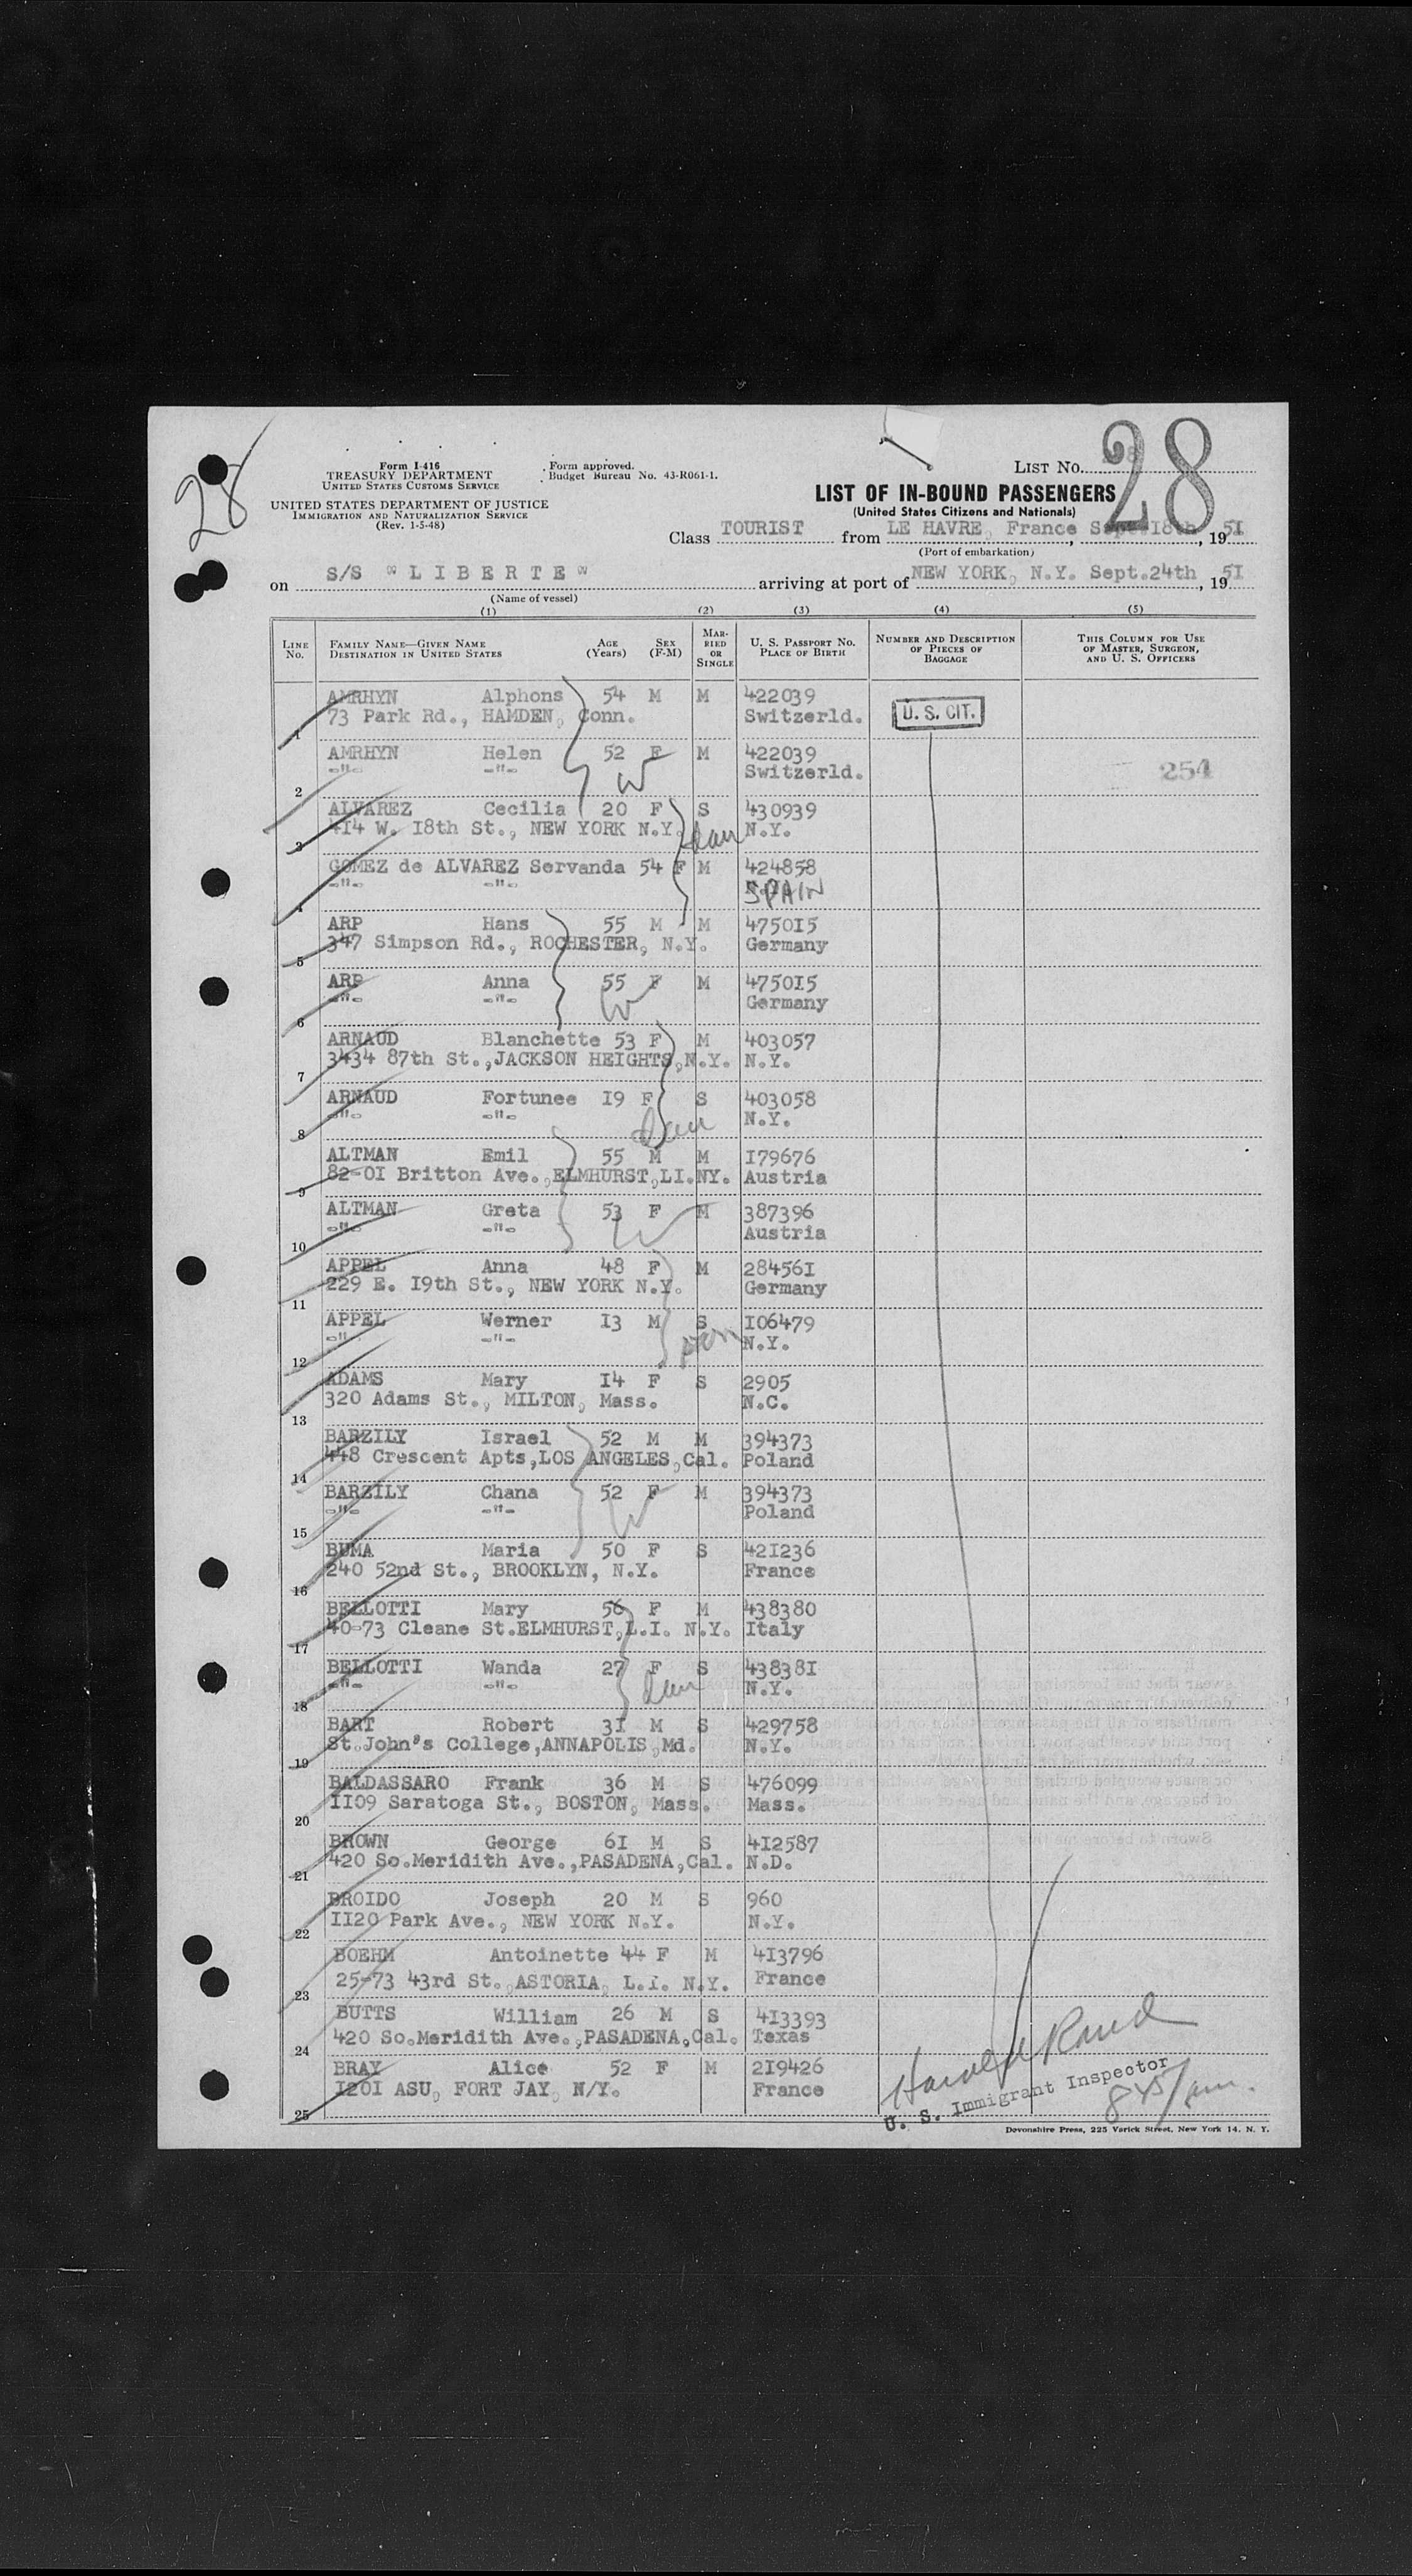 28
Form I-416
TREASURY DEPARTMENT
UNITED STATES CUSTOMS SERVICE
UNITED STATES DEPARTMENT OF JUSTICE
IMMIGRATION AND NATURALIZATION SERVICE
(Rev. 1-5-48)
Form approved.
Budget Bureau No. 43-R061-1.
LIST NO. 28
LIST OF IN-BOUND PASSENGERS
(United States Citizens and Nationals)
Class TOURIST from LE HAVRE, France Sept. 18th, 1951
(Port of embarkation)
on S/S "LIBERTE" arriving at port of NEW YORK, N.Y. Sept.24th, 1951
(Name of vessel)
(1) (2) (3) (4) (5)
LINE NO. FAMILY NAME—GIVEN NAME DESTINATION IN UNITED STATES AGE (Years) SEX (F-M) MARRIED OR SINGLE U. S. PASSPORT NO. PLACE OF BIRTH NUMBER AND DESCRIPTION OF PIECES OF BAGGAGE THIS COLUMN FOR USE OF MASTER, SURGEON, AND U. S. OFFICERS
AMRHYN Alphons 54 M M 422039
1 73 Park Rd., HAMDEN, Conn. Switzerld. U. S. CIT.
AMRHYN Helen 52 F M 422039
2 -"- -"- W Switzerld. 254
ALVAREZ Cecilia 20 F S 430939
3 414 W. 18th St., NEW YORK N.Y. dau N.Y.
GOMEZ de ALVAREZ Servanda 54 F M 424858
4 -"- -"- SPAIN
ARP Hans 55 M M 475015
5 347 Simpson Rd., ROCHESTER, N.Y. Germany
ARP Anna 55 F M 475015
6 -"- -"- W Germany
ARNAUD Blanchette 53 F M 403057
7 3434 87th St.,JACKSON HEIGHTS,N.Y. N.Y.
ARNAUD Fortunee 19 F S 403058
8 -"- -"- dau N.Y.
ALTMAN Emil 55 M M 179676
9 82-01 Britton Ave.,ELMHURST,LI.NY. Austria
ALTMAN Greta 53 F M 387396
10 -"- -"- W Austria
APPEL Anna 48 F M 284561
11 229 E. 19th St., NEW YORK N.Y. Germany
APPEL Werner 13 M S 106479
12 -"- -"- son N.Y.
ADAMS Mary 14 F S 2905
13 320 Adams St., MILTON, Mass. N.C.
BARZILY Israel 52 M M 394373
14 448 Crescent Apts,LOS ANGELES,Cal. Poland
BARZILY Chana 52 F M 394373
15 -"- -"- W Poland
BUMA Maria 50 F S 421236
16 240 52nd St., BROOKLYN, N.Y. France
BELLOTTI Mary 56 F M 438380
17 40-73 Cleane St.ELMHURST,L.I. N.Y. Italy
BELLOTTI Wanda 27 F S 438381
18 -"- -"- dau N.Y.
BART Robert 31 M S 429758
19 St.John's College,ANNAPOLIS,Md. N.Y.
BALDASSARO Frank 36 M S 476099
20 1109 Saratoga St., BOSTON, Mass. Mass.
BROWN George 61 M S 412587
21 420 So.Meridith Ave.,PASADENA,Cal. N.D.
BROIDO Joseph 20 M S 960
22 1120 Park Ave., NEW YORK N.Y. N.Y.
BOEHM Antoinette 44 F M 413796
23 25-73 43rd St.,ASTORIA, L.I. N.Y. France
BUTTS William 26 M S 413393
24 420 So.Meridith Ave.,PASADENA,Cal. Texas
BRAY Alice 52 F M 219426
25 1201 ASU, FORT JAY, N/Y. France
Harold Rand
U. S. Immigrant Inspector
845/am.
Devonshire Press, 225 Varick Street, New York 14, N. Y.